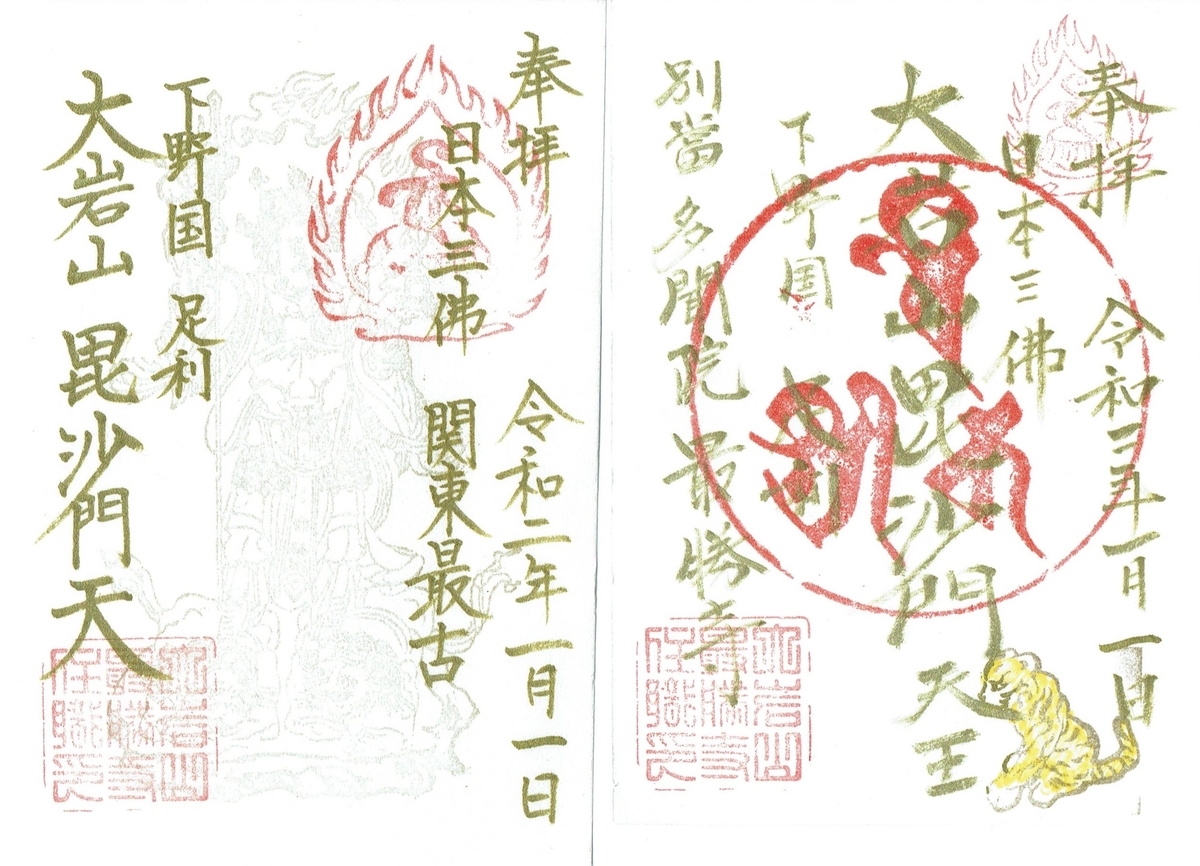 奉拝 令和三年一月一日
日本三佛
大岩山毘沙門天王
下野国 足利
別當 多聞院 最勝寺
大岩山
最勝寺
住職
奉拝 令和二年一月一日
日本三佛 関東最古
下野国 足利
大岩山 毘沙門天
大岩山
最勝寺
住職